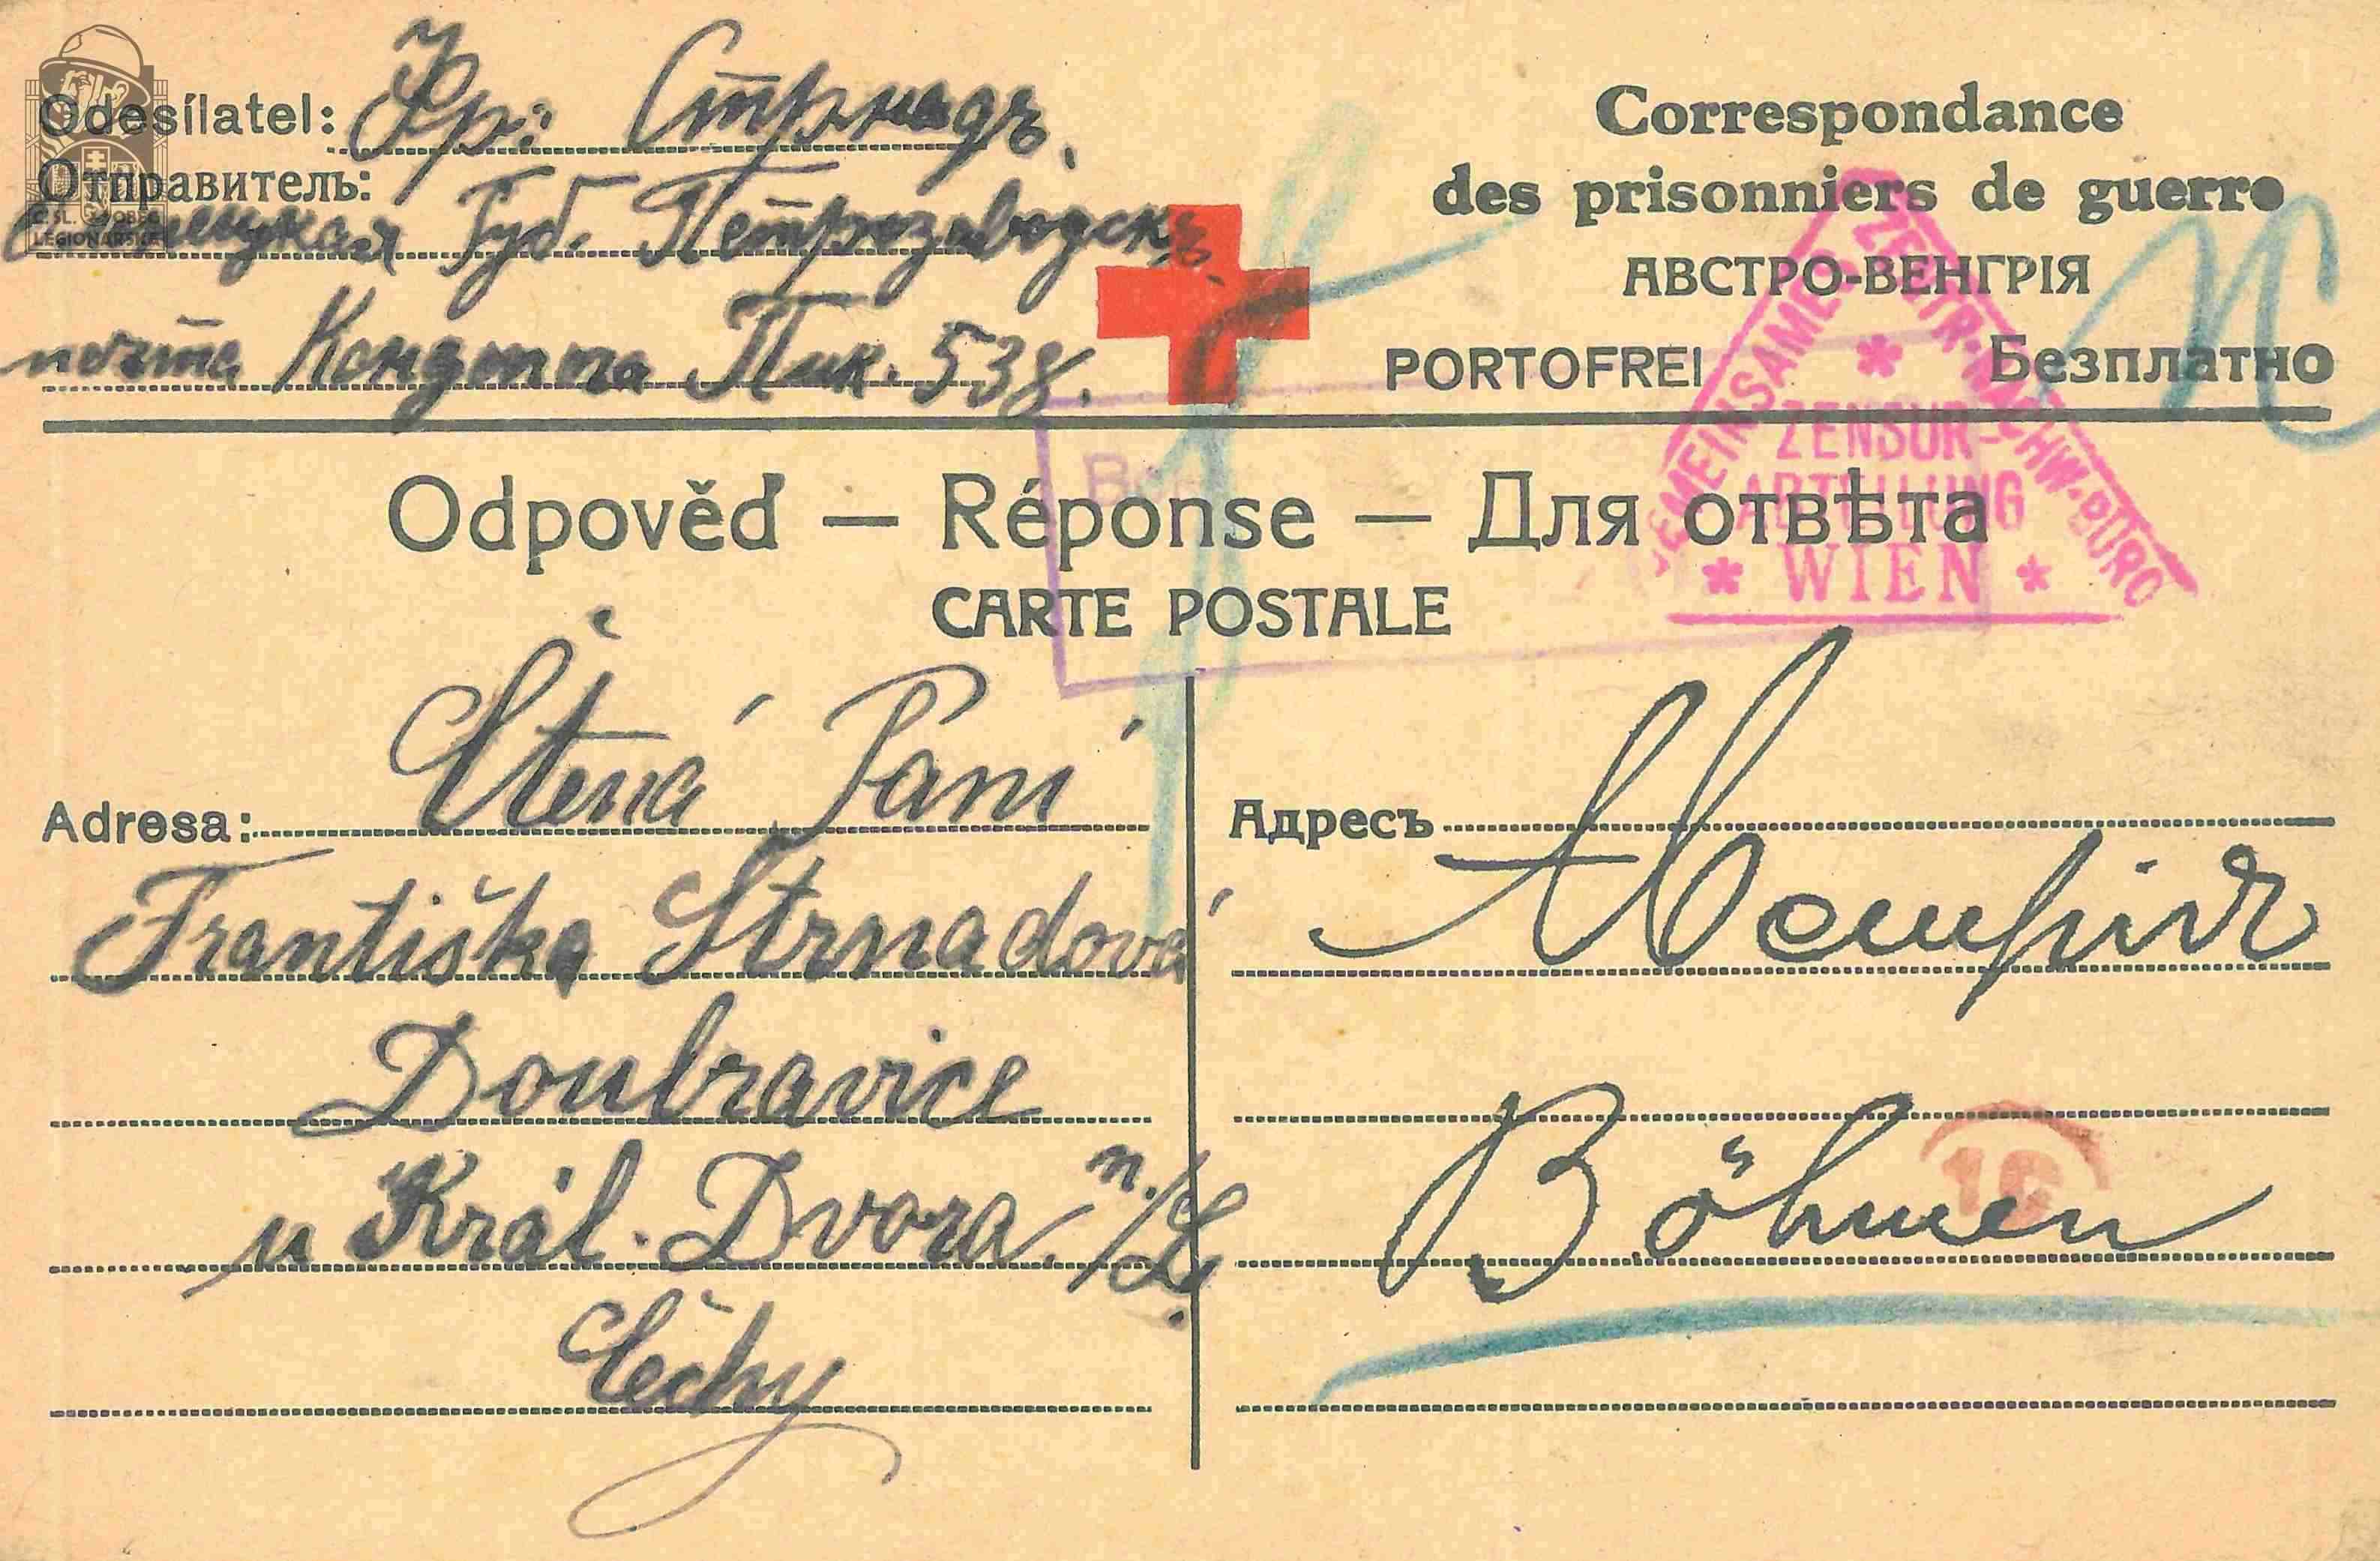 Odesílatel: Фр: Стрнадъ.
Отправитель:
Губ. Петрозаводскъ.
почта Пик. 538.
Č. SL. OBEC
LEGIONÁŘSKÁ
Correspondance
des prisonniers de guerre
АВСТРО-ВЕНГРІЯ
PORTOFREI Безплатно
GEMEINSAMES ZENTR-NACHW-BÜRO
ZENSUR-
ABTEILUNG
WIEN
Odpověď — Réponse — Для отвѣта
CARTE POSTALE
Adresa: Ctěná Paní
Františka Strnadová
Doubravice
u Král. Dvora n./L.
Čechy
Адресъ
Австрія
Böhmen